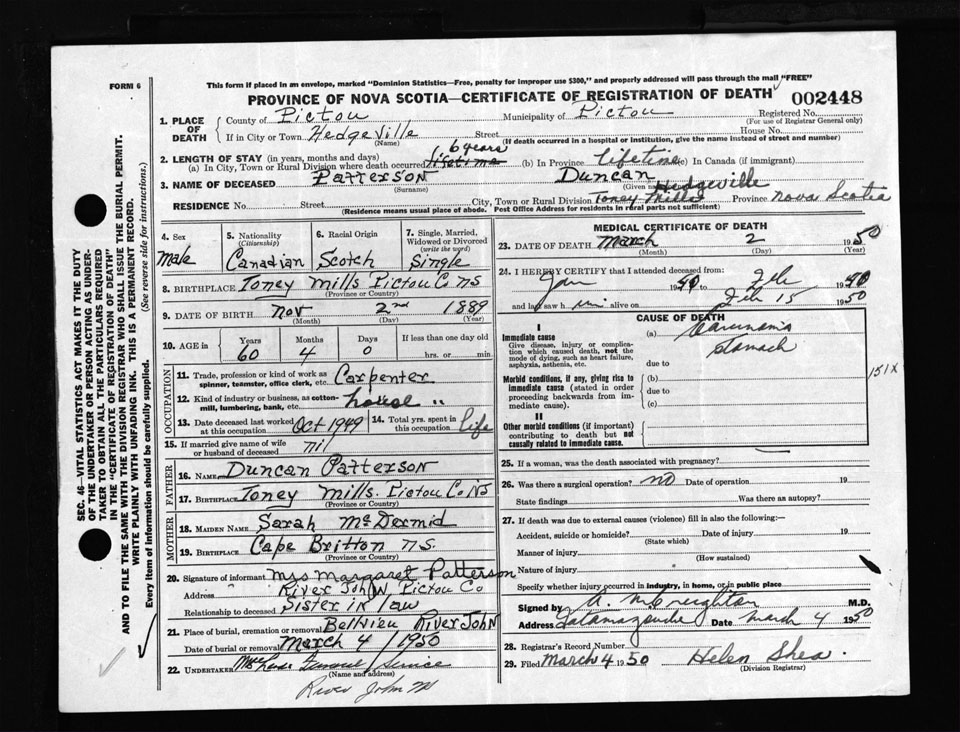 FORM 6
This form if placed in an envelope, marked "Dominion Statistics—Free, penalty for improper use $300," and properly addressed will pass through the mail "FREE"
PROVINCE OF NOVA SCOTIA—CERTIFICATE OF REGISTRATION OF DEATH
002448
1. PLACE OF DEATH
County of Pictou Municipality of Pictou Registered No.
(For use of Registrar General only)
If in City or Town Hedgeville Street House No.
(Name) (If death occurred in a hospital or institution, give the name instead of street and number)
2. LENGTH OF STAY (in years, months and days) 6 years
(a) In City, Town or Rural Division where death occurred lifetime (b) In Province lifetime (c) In Canada (if immigrant)
3. NAME OF DECEASED Patterson Duncan
(Surname) (Given name)
Hedgeville
RESIDENCE No. Street City, Town or Rural Division Toney Mills Province Nova Scotia
(Residence means usual place of abode. Post Office Address for residents in rural parts not sufficient)
4. Sex Male
5. Nationality (Citizenship) Canadian
6. Racial Origin Scotch
7. Single, Married, Widowed or Divorced (write the word) Single
8. BIRTHPLACE Toney Mills Pictou Co NS
(Province or Country)
9. DATE OF BIRTH Nov 2nd 1889
(Month) (Day) (Year)
10. AGE in Years Months Days If less than one day old
60 4 0 hrs. or min.
OCCUPATION
11. Trade, profession or kind of work as spinner, teamster, office clerk, etc. Carpenter
12. Kind of industry or business, as cotton-mill, lumbering, bank, etc. house "
13. Date deceased last worked at this occupation Oct 1949
14. Total yrs. spent in this occupation life
15. If married give name of wife or husband of deceased nil
FATHER
16. NAME Duncan Patterson
17. BIRTHPLACE Toney Mills. Pictou Co NS
(Province or Country)
MOTHER
18. MAIDEN NAME Sarah McDermid
19. BIRTHPLACE Cape Britton NS.
(Province or Country)
20. Signature of informant Mrs Margaret Patterson
Address River John Pictou Co
Relationship to deceased Sister in law
21. Place of burial, cremation or removal Bellview River John
Date of burial or removal March 4 / 1950
22. UNDERTAKER Funeral Service
(Name and address)
River John
MEDICAL CERTIFICATE OF DEATH
23. DATE OF DEATH March 2 1950
(Month) (Day) (Year)
24. I HEREBY CERTIFY that I attended deceased from:
Jan to Feb 1950
and last saw him alive on Feb 15 1950
CAUSE OF DEATH
I
Immediate cause
Give disease, injury or complication which caused death, not the mode of dying, such as heart failure, asphyxia, asthenia, etc.
(a) Carcinoma stomach
due to
151X
Morbid conditions, if any, giving rise to immediate cause (stated in order proceeding backwards from immediate cause).
(b)
due to
(c)
II
Other morbid conditions (if important) contributing to death but not causally related to immediate cause.
25. If a woman, was the death associated with pregnancy?
26. Was there a surgical operation? no Date of operation 19
State findings Was there an autopsy?
27. If death was due to external causes (violence) fill in also the following:—
Accident, suicide or homicide? Date of injury 19
(State which)
Manner of injury
(How sustained)
Nature of injury
Specify whether injury occurred in industry, in home, or in public place
Signed by A. McCreighton M.D.
Address Tatamagouche Date March 4 1950
28. Registrar's Record Number
29. Filed March 4 1950 Helen Shea.
(Division Registrar)
SEC. 46—VITAL STATISTICS ACT MAKES IT THE DUTY
OF THE UNDERTAKER OR PERSON ACTING AS UNDER-
TAKER TO OBTAIN ALL THE PARTICULARS REQUIRED
IN THE "CERTIFICATE OF REGISTRATION OF DEATH"
AND TO FILE THE SAME WITH THE DIVISION REGISTRAR WHO SHALL ISSUE THE BURIAL PERMIT.
WRITE PLAINLY WITH UNFADING INK. THIS IS A PERMANENT RECORD.
Every item of information should be carefully supplied. (See reverse side for instructions.)